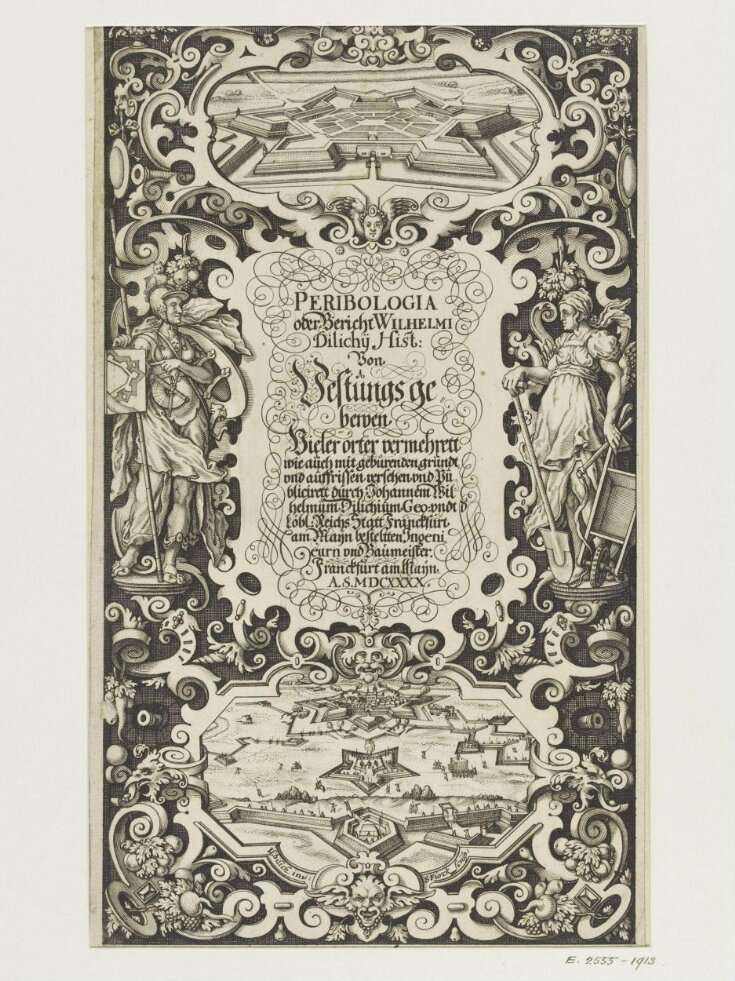 PERIBOLOGIA
oder Bericht WILHELMI
Dilichij Hist:
Von
Vestungs ge„
bewen
Vieler örter vermehrett
wie auch mit gebürenden grundt
vnd auffrissen versehen vnd Pu
blicirett durch Johannem Wil
helmum Dilichium Geo: vndt d
Löbl. Reichs Statt Franckfurt
am Mayn bestelten Ingeni
eurn vnd Baumeister.
Franckfurt am Mayn.
A. S. MDCXXXX
W Dilich inv:
S Furck
E. 2555 - 1913